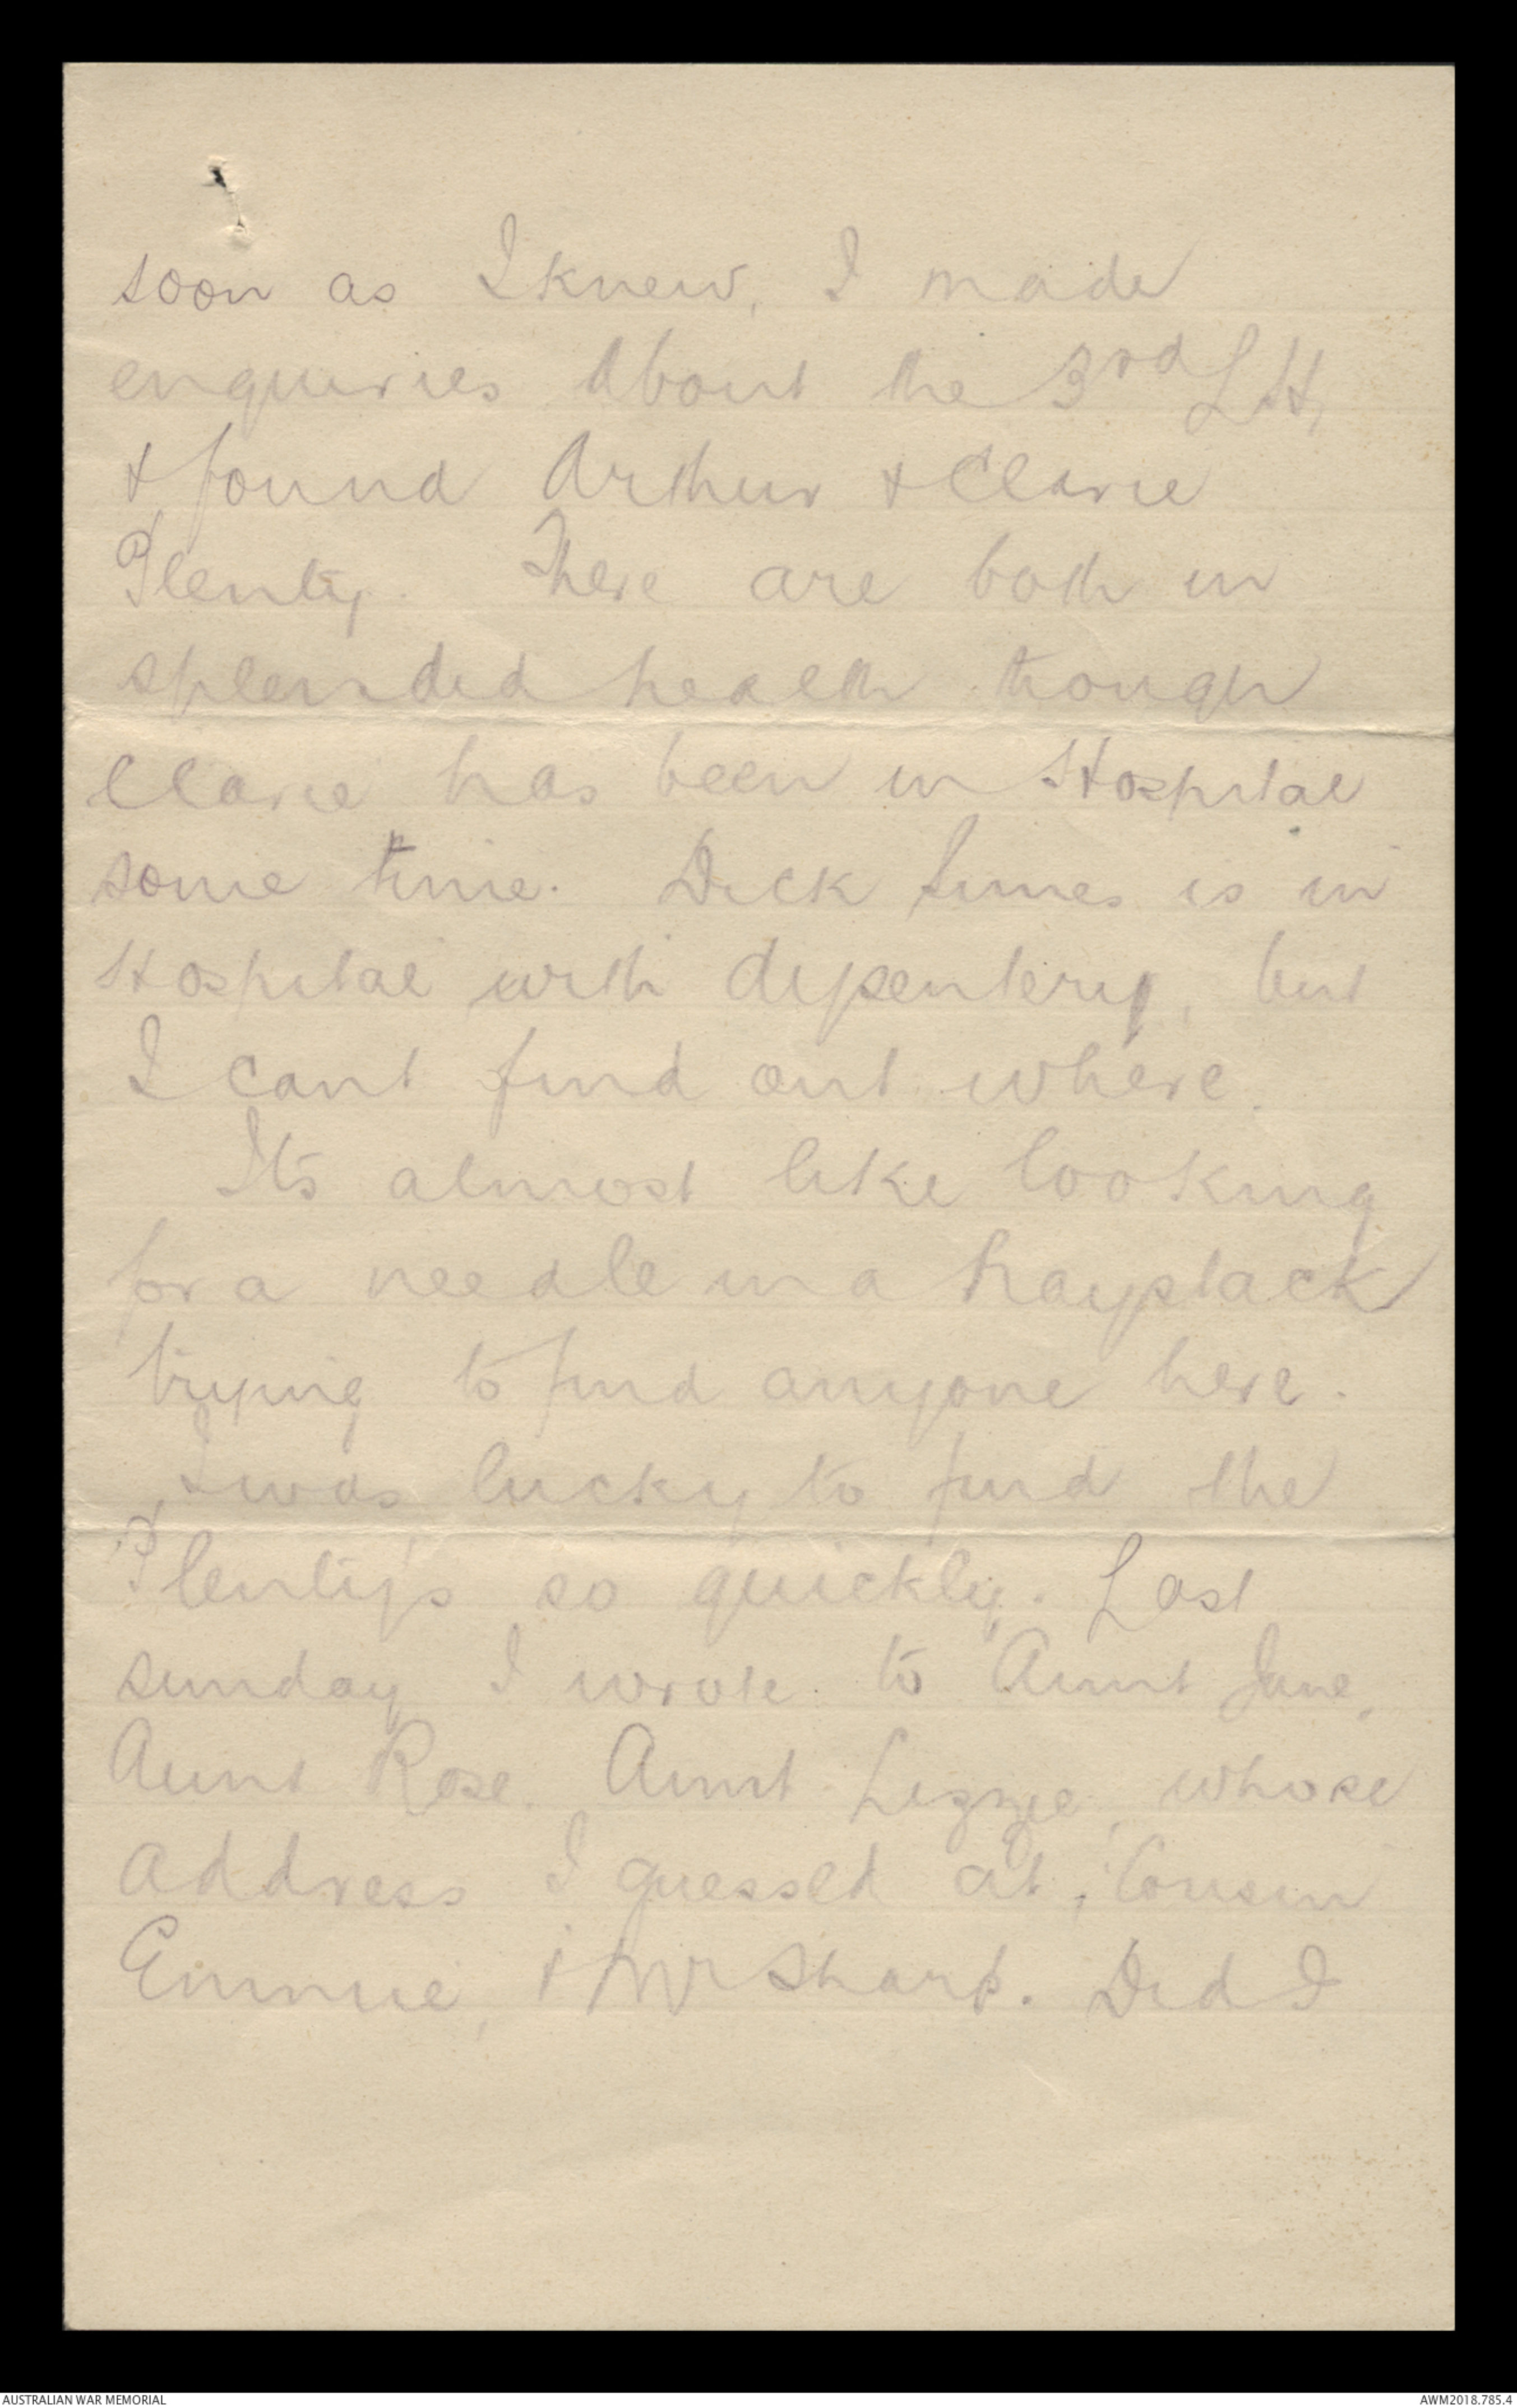 soon as I knew, I made
enquiries about the 3rd L.H,
& found Arthur & Clarie
Plenty. There are both in
splended health though
Clarie has been in Hospital
some time. Dick is in
Hospital with dysentery, but
I cant find out where.
Its almost like looking
for a needle in a haystack
trying to find anyone here.
I was lucky to find the
Plenty's so quickly. Last
sunday I wrote to Aunt Jane,
Aunt Rose, Aunt Lizzie, whose
address I guessed at, Cousin
Emmie, & Mr Sharp. Did I
AUSTRALIAN WAR MEMORIAL
AWM2018.785.4